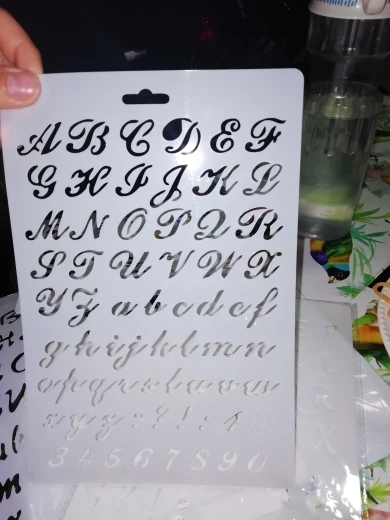 A B C D E F
G H I J K L
M N O P Q R
S T U V W X
Y Z a b c d e f
g h i j k l m n
o p q r s t u v w
x y z : ? ! ; 1 2
3 4 5 6 7 8 9 0